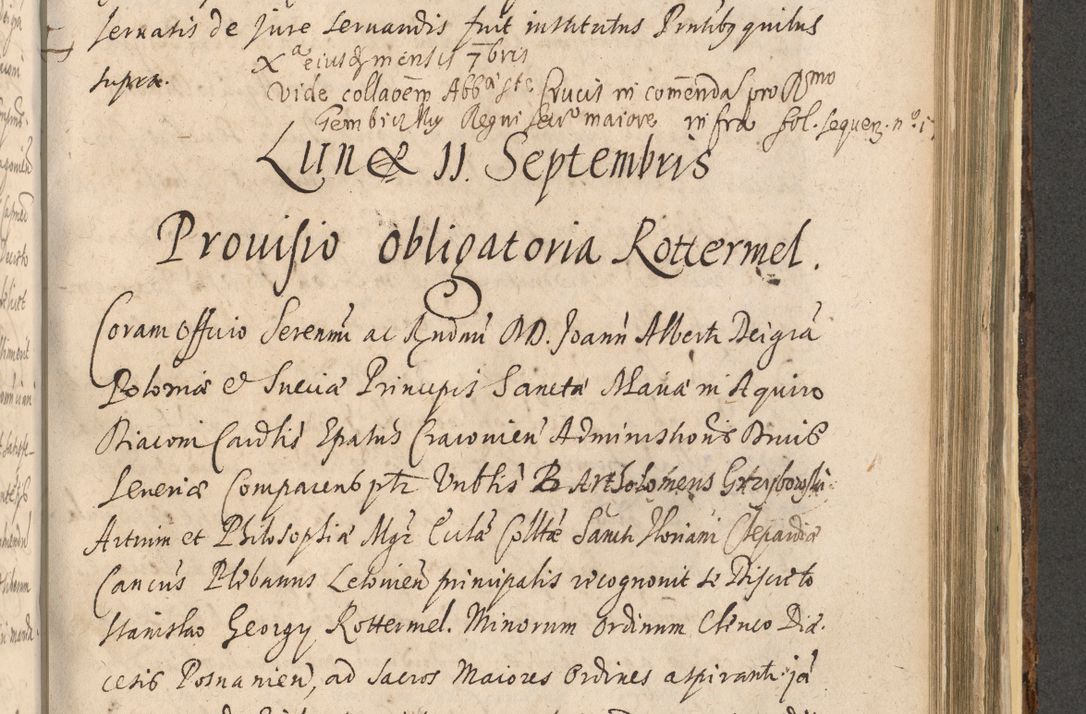 seruatis de Jure seruandis fuit institutus Pntibg quibus
supra.
Xa eiusd mensis 7bris
Vide collaoem Abbis Stc Crucis in comenda pro Rmo
Gembiczky Regni Secro maiore infra fol. sequen. no. 1
Lunæ 11. Septembris
Prouisio obligatoria Rottermel.
Coram officio Serenmi ac Rndmi DD. Joann Alberti Dei gra
Poloniæ et Sueciæ Principis Sanctæ Mariæ in Aquiro
Diaconi Cardlis Epatus Cracouien Administrois
Seueriæ Comparens ptr Vnblis Bartholomeus Grzyborski
Artium et Philosophiæ Mgr Ecclæ Colltæ Sancti Floriani Clepardiæ
Cancus Plebanus Lelouien principalis recognouit se Discreto
Stanislao Georgy Rottermel. Minorum ordinum Clerico Diæ-
cesis Posnanien, ad Sacros Maiores Ordines aspiranti ja